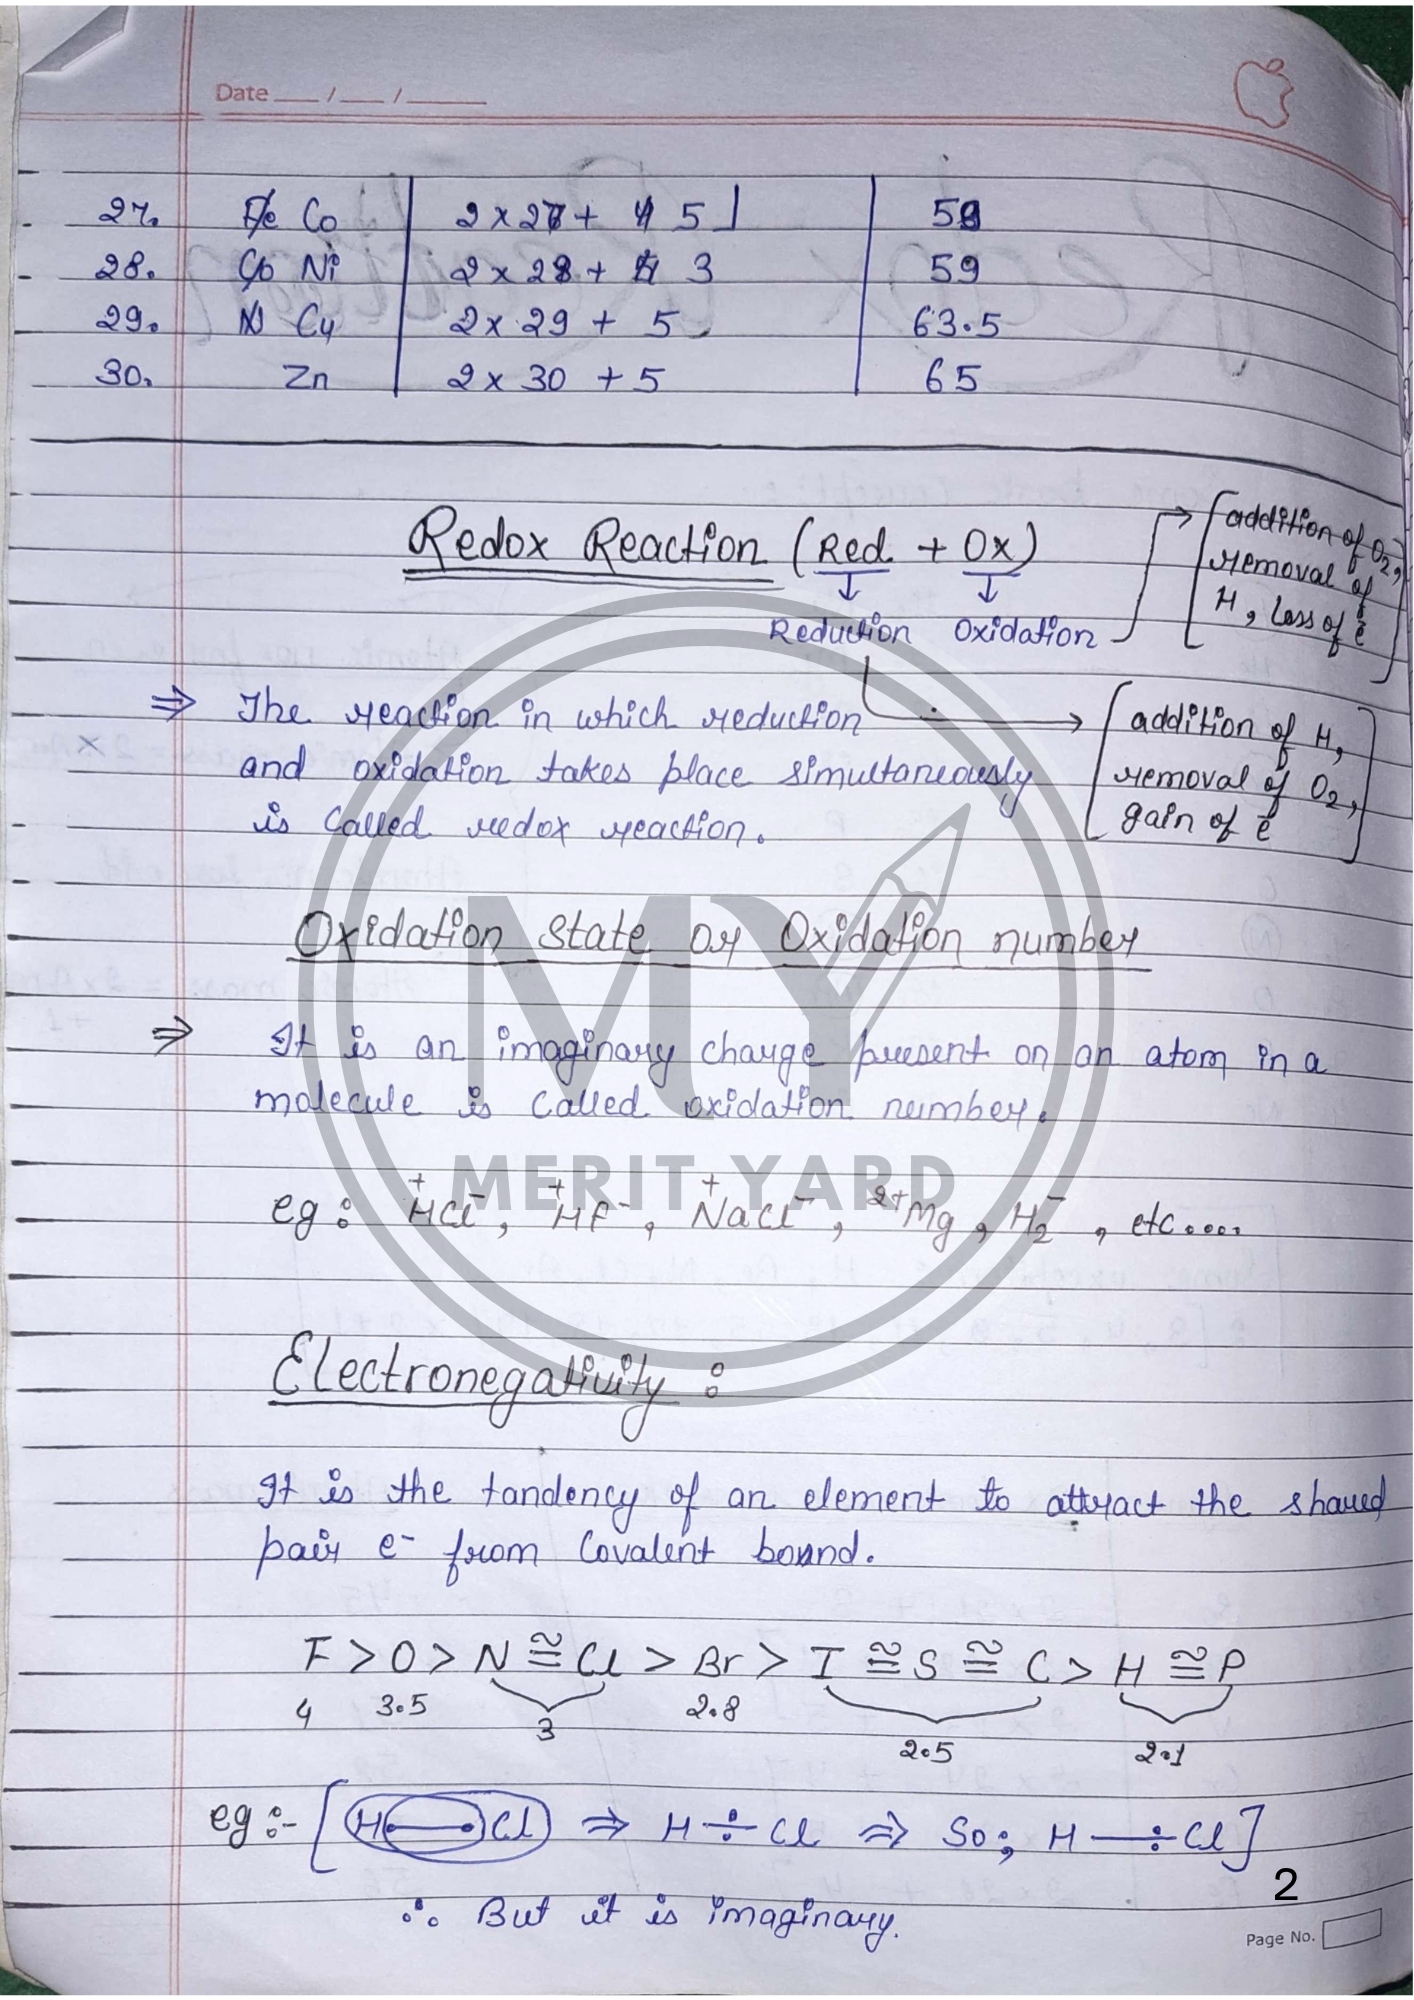 Date __/__/____
27. Co 2 x 27 + 5 59
28. Ni 2 x 28 + 3 59
29. Cu 2 x 29 + 5 63.5
30. Zn 2 x 30 + 5 65
Redox Reaction (Red + Ox)
Reduction Oxidation
[addition of O₂,
removal of
H, loss of e̅]
⇒ The reaction in which reduction
and oxidation takes place simultaneously
is called redox reaction.
[addition of H,
removal of O₂,
gain of e̅]
Oxidation state or Oxidation number
⇒ It is an imaginary charge present on an atom in a
molecule is called oxidation number.
MY
MERIT YARD
eg: ⁺HCl⁻, ⁺HF⁻, ⁺NaCl⁻, ²⁺Mg, H₂⁻, etc....
Electronegativity :
It is the tandency of an element to attract the shared
pair e⁻ from covalent bound.
F > O > N ≅ Cl > Br > I ≅ S ≅ C > H ≅ P
4 3.5 3 2.8 2.5 2.1
eg :- [H — Cl ⇒ H ÷ Cl ⇒ So; H —÷ Cl]
∴ But it is imaginary.
2
Page No.